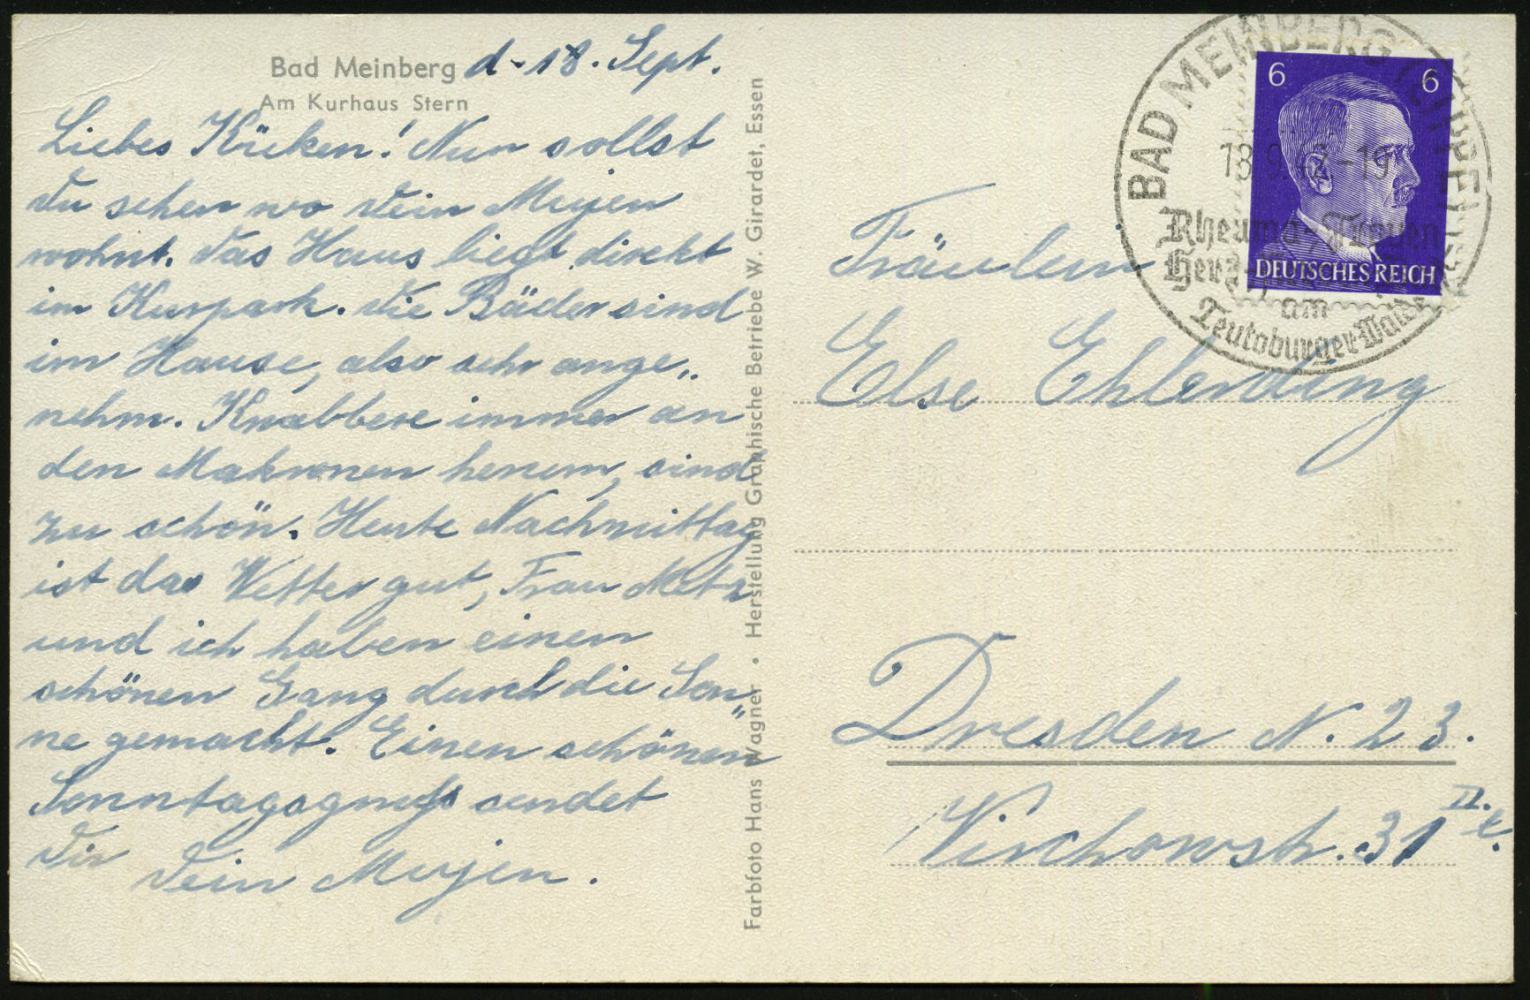 Bad Meinberg d. 18. Sept.
Am Kurhaus Stern
Liebes Kücken! Nun sollst
Du sehen wo Dein Mujen
wohnt. Das Haus liegt direkt
im Kurpark. Die Bäder sind
im Hause, also sehr ange„
nehm. Knabbere immer an
den Makronen herum, sind
zu schön. Heute Nachmittag
ist das Wetter gut, Frau Metz
und ich haben einen
schönen Gang durch die Son„
ne gemacht. Einen schönen
Sonntagsgruß sendet
Dir Dein Mujen.
Farbfoto Hans Wagner • Herstellung Graphische Betriebe W. Girardet, Essen
BAD MEINBERG
18.9.42.-19
Rheuma-
Herz-
am
Teutoburger Wald
6 6
DEUTSCHES REICH
Fräulein
Else Ehlerding
Dresden N. 23.
Virchowstr. 31 II. r.